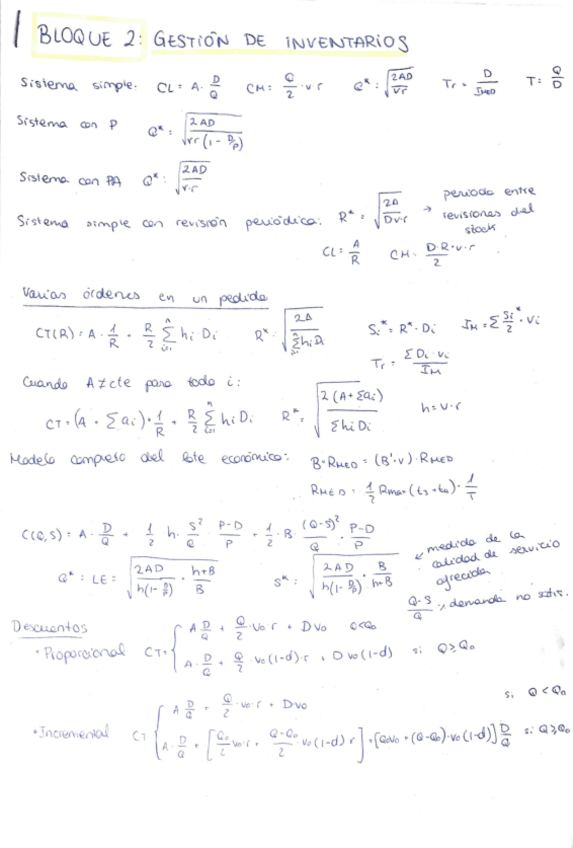 BLOQUE 2: GESTIÓN DE INVENTARIOS
Sistema simple: CL = A · D/Q   CM = Q/2 · v r   Q* = √(2AD/vr)   Tr = D/IMED   T = Q/D
Sistema con P   Q* = √(2AD/(v r (1 - D/P)))
Sistema con PA   Q* = √(2AD/(v·r))
Sistema simple con revisión periódica: R* = √(2A/(D v·r)) → periodo entre revisiones del stock
CL = A/R   CM = D·R·v·r/2
Varias órdenes en un pedido
CT(R) = A · 1/R + R/2 Σ hi Di   R* = √(2A/Σ hi Di)   Si* = R* · Di   IM = Σ Si*/2 · vi
Tr = Σ Di · vi / IM
Cuando A ≠ cte para todo i:
CT = (A + Σ ai) · 1/R + R/2 Σ hi Di   R* = √(2(A + Σai)/Σ hi Di)   h = v·r
Modelo completo del lote económico: B·RMED = (B'·v)·RMED
RMED = 1/2 Rmax (t3 + t4) · 1/T
C(Q,S) = A · D/Q + 1/2 h · S²/Q · P-D/P + 1/2 · B · (Q-S)²/Q · P-D/P
Q* = LE = √(2AD/(h(1 - D/P)) · (h+B)/B)   S* = √(2AD/(h(1 - D/P)) · B/(h+B))   ← medida de la calidad de servicio ofrecida
Q-S/Q , demanda no satis.
Descuentos
· Proporcional   CT = { A D/Q + Q/2 · v0 · r + D v0   Q<Q0
A · D/Q + Q/2 · v0 (1-d) · r + D v0 (1-d)   si Q ≥ Q0
· Incremental   CT { A D/Q + Q/2 · v0 · r + D v0   si Q < Q0
A · D/Q + [Q0/2 v0 · r + Q-Q0/2 v0 (1-d) r] + [Q0 v0 + (Q-Q0) · v0 (1-d)] D/Q   si Q ≥ Q0